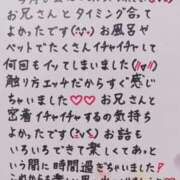 お兄さんとタイミング合って
よかったです(>_<) お風呂や
ベットでたくさんイチャイチャして
何回もイッてしまいました(//∇//)
触り方エッチだからすぐ感じ
ちゃいました♡♡ お兄さんと
密着イチャイチャするの気持ち
よかったです(>_<) お話も
いろいろできて楽しくてあと
いう間に時間過ぎちゃいました